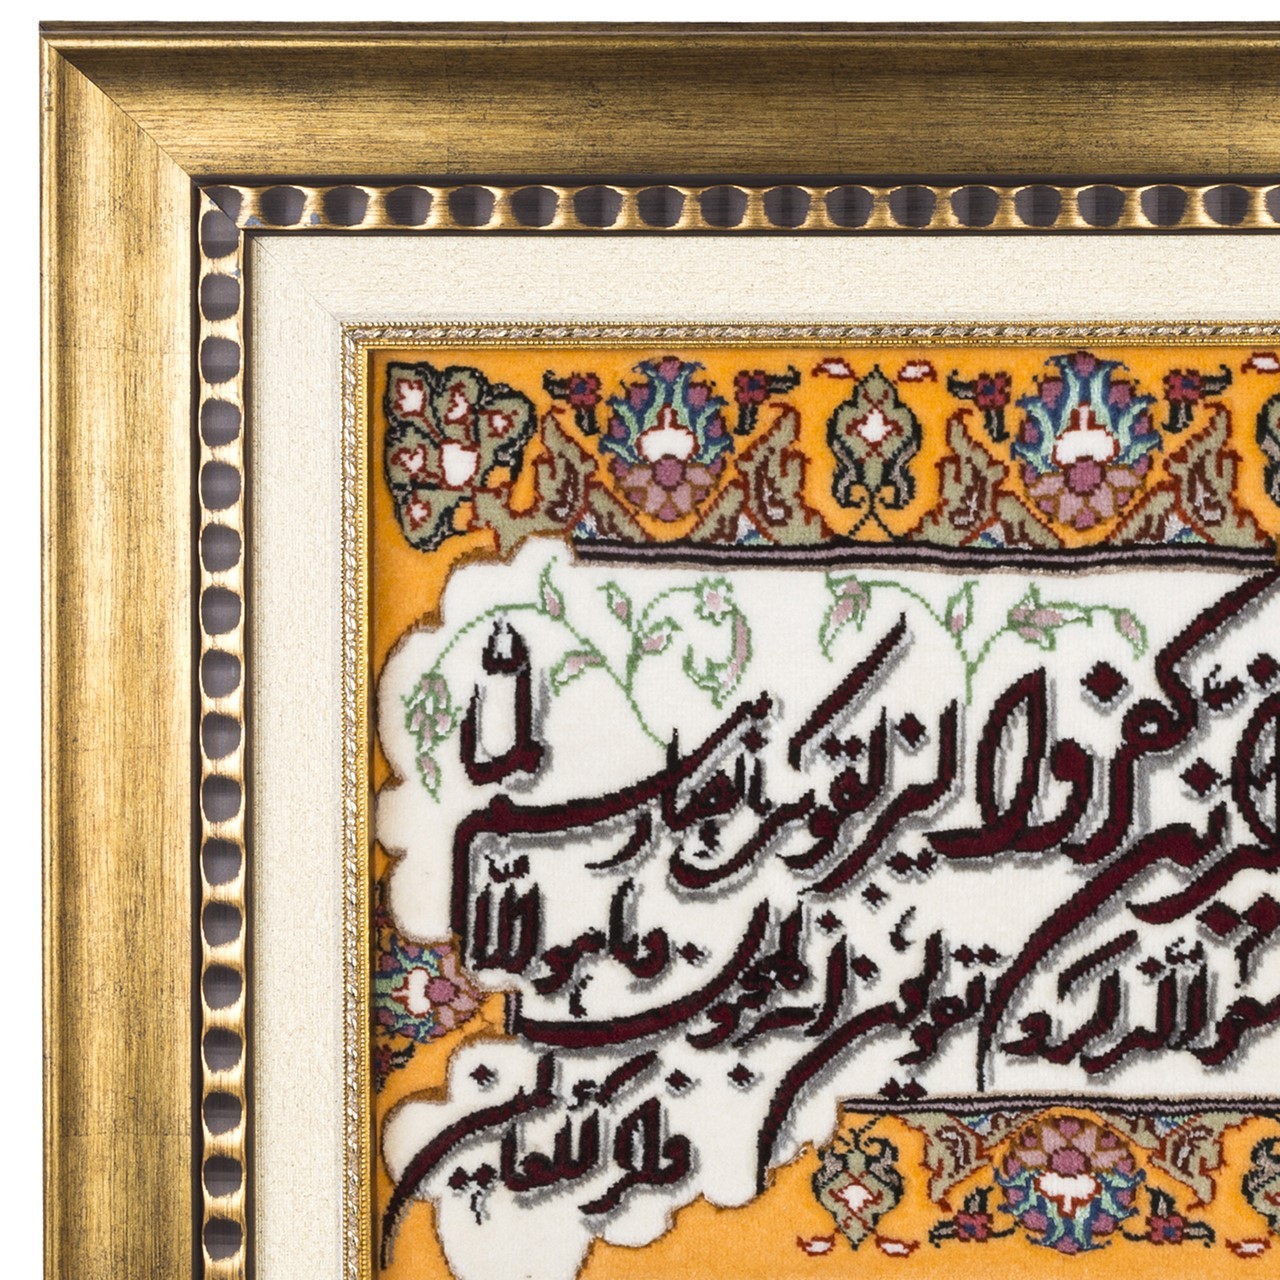 كفروا ليزلقونك بأبصارهم لما
سمعوا الذكر و يقولون إنه لمجنون و ما هو إلا
ذكر للعالمين